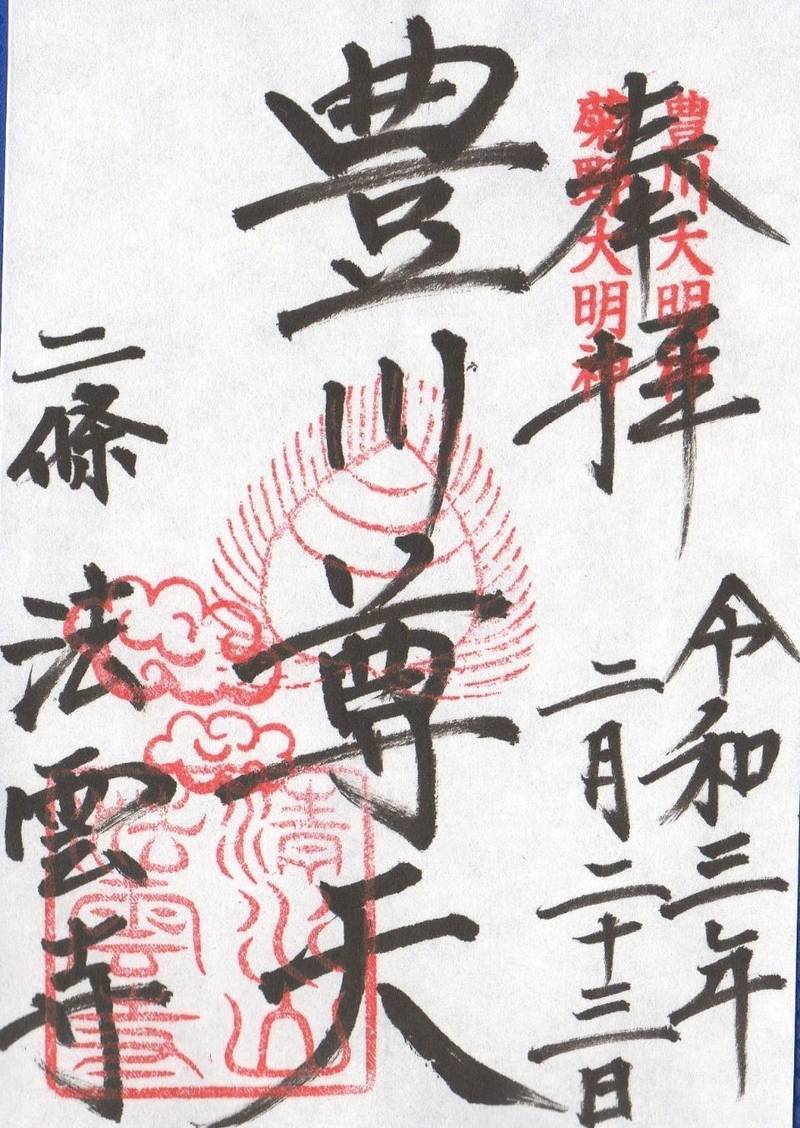 奉拝
豊川大明神
菊野大明神
令和三年
二月二十三日
豊川尊天
二條
法雲寺
清流山
法雲寺